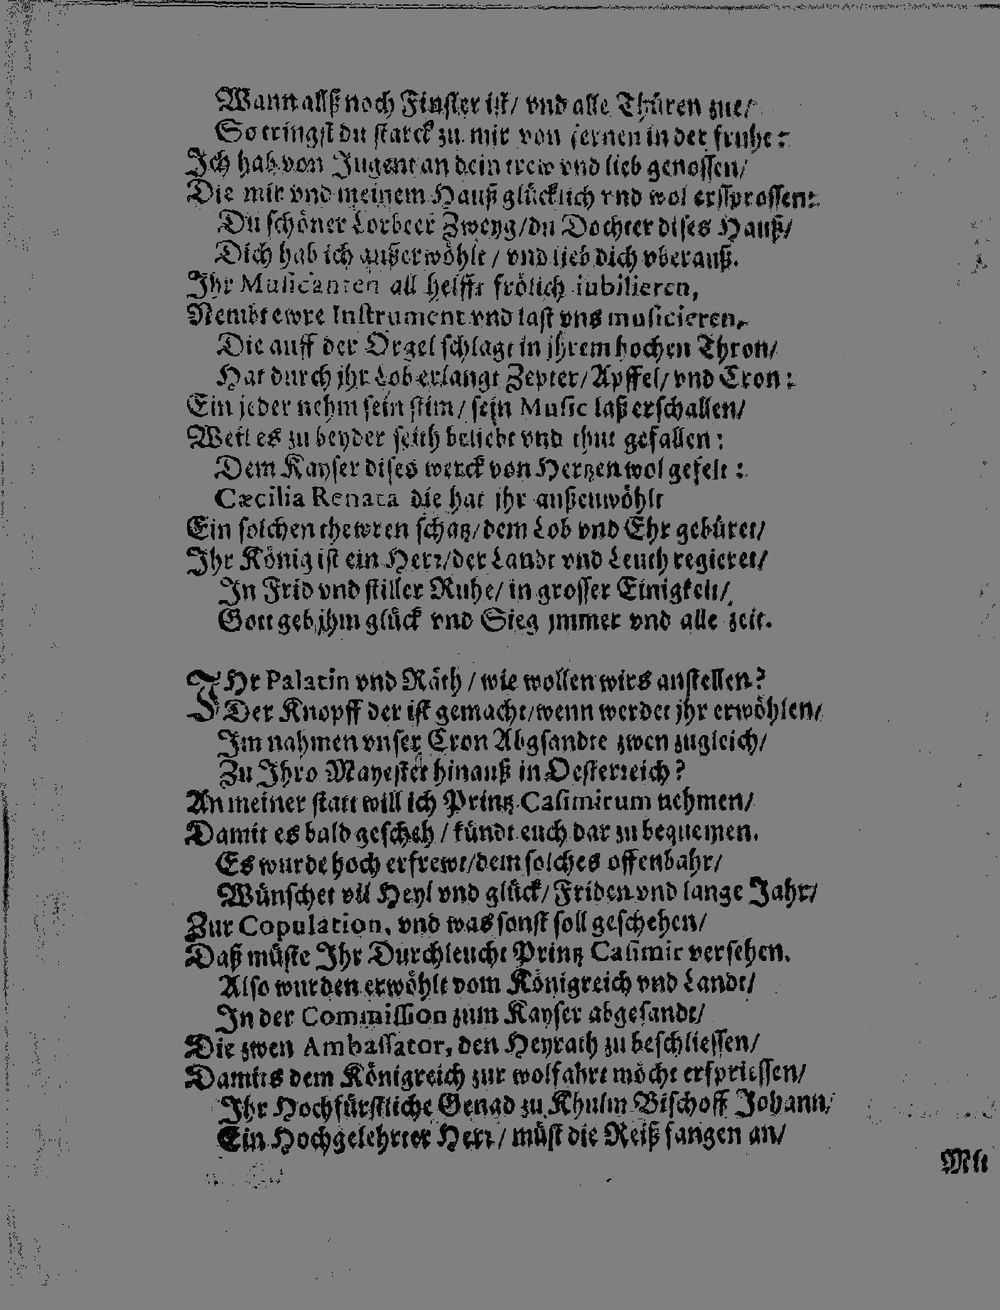 Wann allß noch Finster ist/ vnd alle Thüren zue/
So tringst du starck zu mir von fernen in der fruhe:
Ich hab von Jugent an dein trew vnd lieb genossen/
Die mir vnd meinem Hauß glücklich vnd wol erssprossen:
Du schöner Lorbeer Zweyg/du Dochter dises Hauß/
Dich hab ich außerwöhlt/ vnd lieb dich vberauß.
Ihr Musicanten all helfft frölich iubilieren,
Nembt ewre Instrument vnd last vns musicieren,
Die auff der Orgel schlagt in jhrem hochen Thron/
Hat durch jhr Lob erlangt Zepter/ Apffel/ vnd Cron:
Ein jeder nehm sein stim/ sein Music laß erschallen/
Weil es zu beyder seith beliebt vnd thut gefallen:
Dem Kayser dises werck von Hertzen wol gefelt:
Cæcilia Renata die hat jhr außenwöhlt
Ein solchen thewren schatz/dem Lob vnd Ehr gebüret/
Ihr König ist ein Herr/der Landt vnd Leuth regieret/
In Frid vnd stiller Ruhe/ in grosser Einigkeit/
Gott geb jhm glück vnd Sieg jmmer vnd alle zeit.

IHr Palatin vnd Räth/ wie wollen wirs anstellen?
Der Knopff der ist gemacht/wenn werdet jhr erwöhlen/
Im nahmen vnser Cron Abgsandte zwen zugleich/
Zu Ihro Mayestet hinauß in Oesterreich?
An meiner statt will ich Printz Casimirum nehmen/
Damit es bald gescheh/ kündt euch dar zu bequemen.
Es wurde hoch erfrewt/dem solches offenbahr/
Wünschet vil Heyl vnd glück/ Friden vnd lange Jahr/
Zur Copulation, vnd was sonst soll geschehen/
Daß müste Ihr Durchleucht Printz Casimir versehen.
Also wurden erwöhlt vom Königreich vnd Landt/
In der Commission zum Kayser abgesandt/
Die zwen Ambassator, den Heyrath zu beschliessen/
Damits dem Königreich zur wolfahrt möcht erspriessen/
Ihr Hochfürstliche Genad zu Khulm Bischoff Johann/
Ein Hochgelehrter Herr/ müst die Reiß fangen an/
Mit